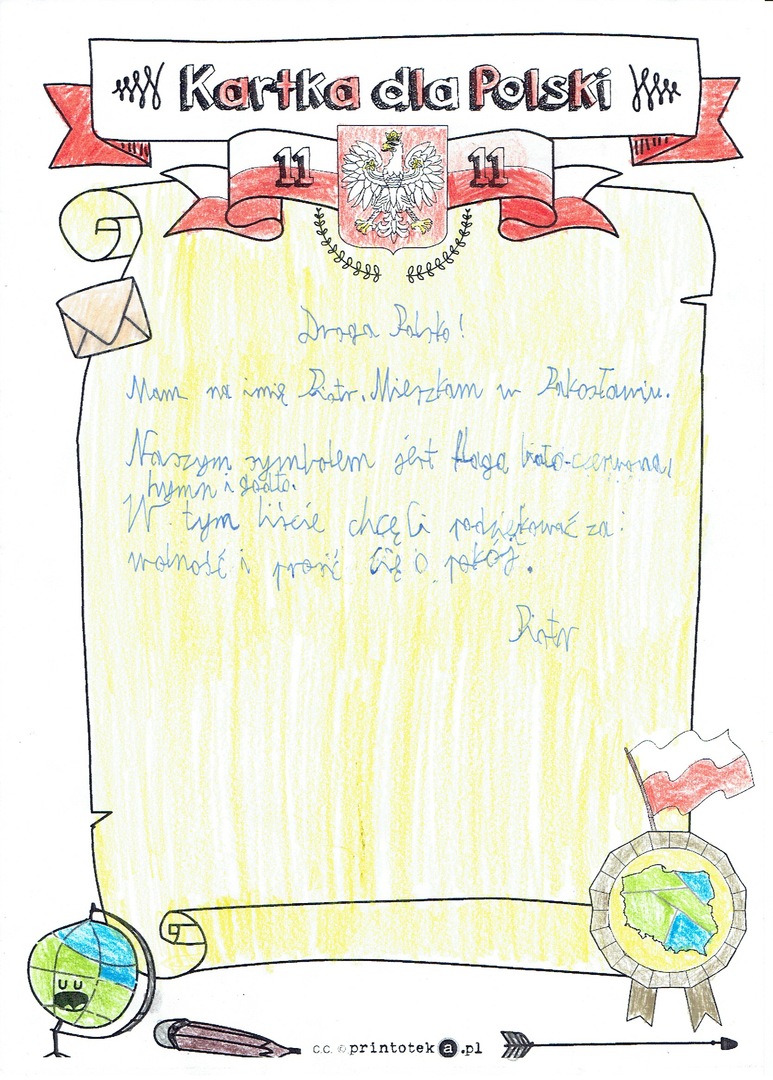 Kartka dla Polski
11 11
Droga Polsko!
Mam na imię Piotr. Mieszkam w Pakosławiu.
Naszym symbolem jest flaga biało-czerwona,
hymn i godło.
W tym liście chcę Ci podziękować za:
wolność i prosić Cię o pokój.
Piotr
c.c. printoteka.pl